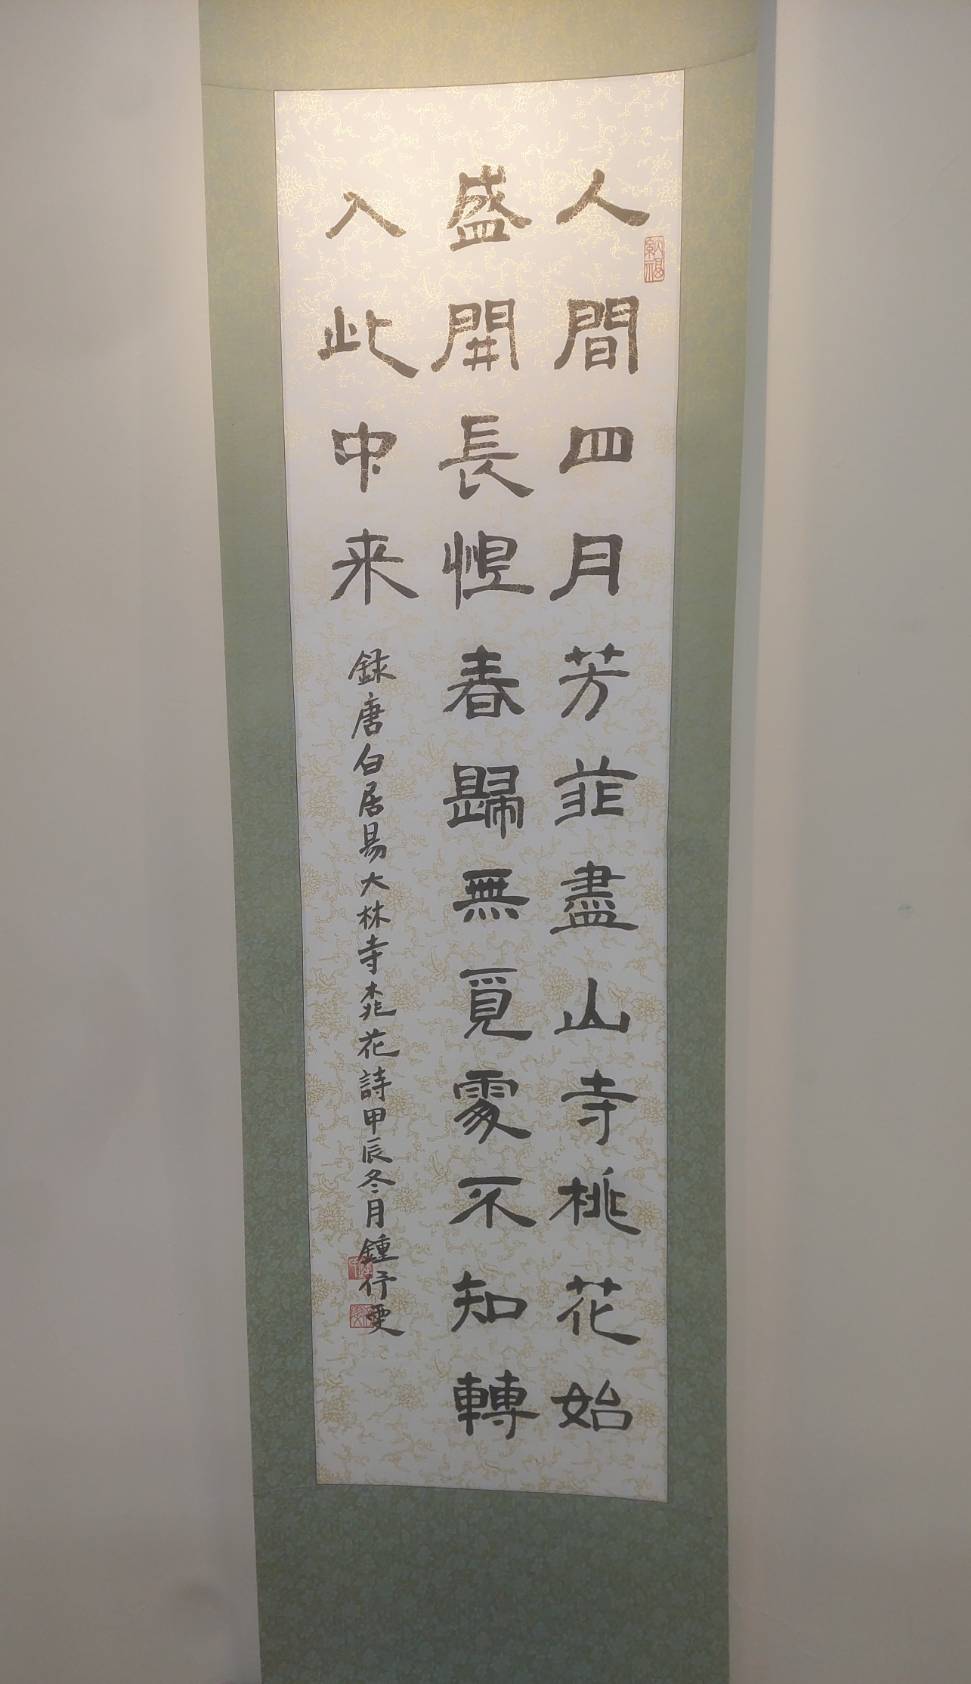 人間四月芳菲盡山寺桃花始
盛開長恨春歸無覓處不知轉
入此中来
録唐白居易大林寺桃花詩甲辰冬月鍾行雯
納福